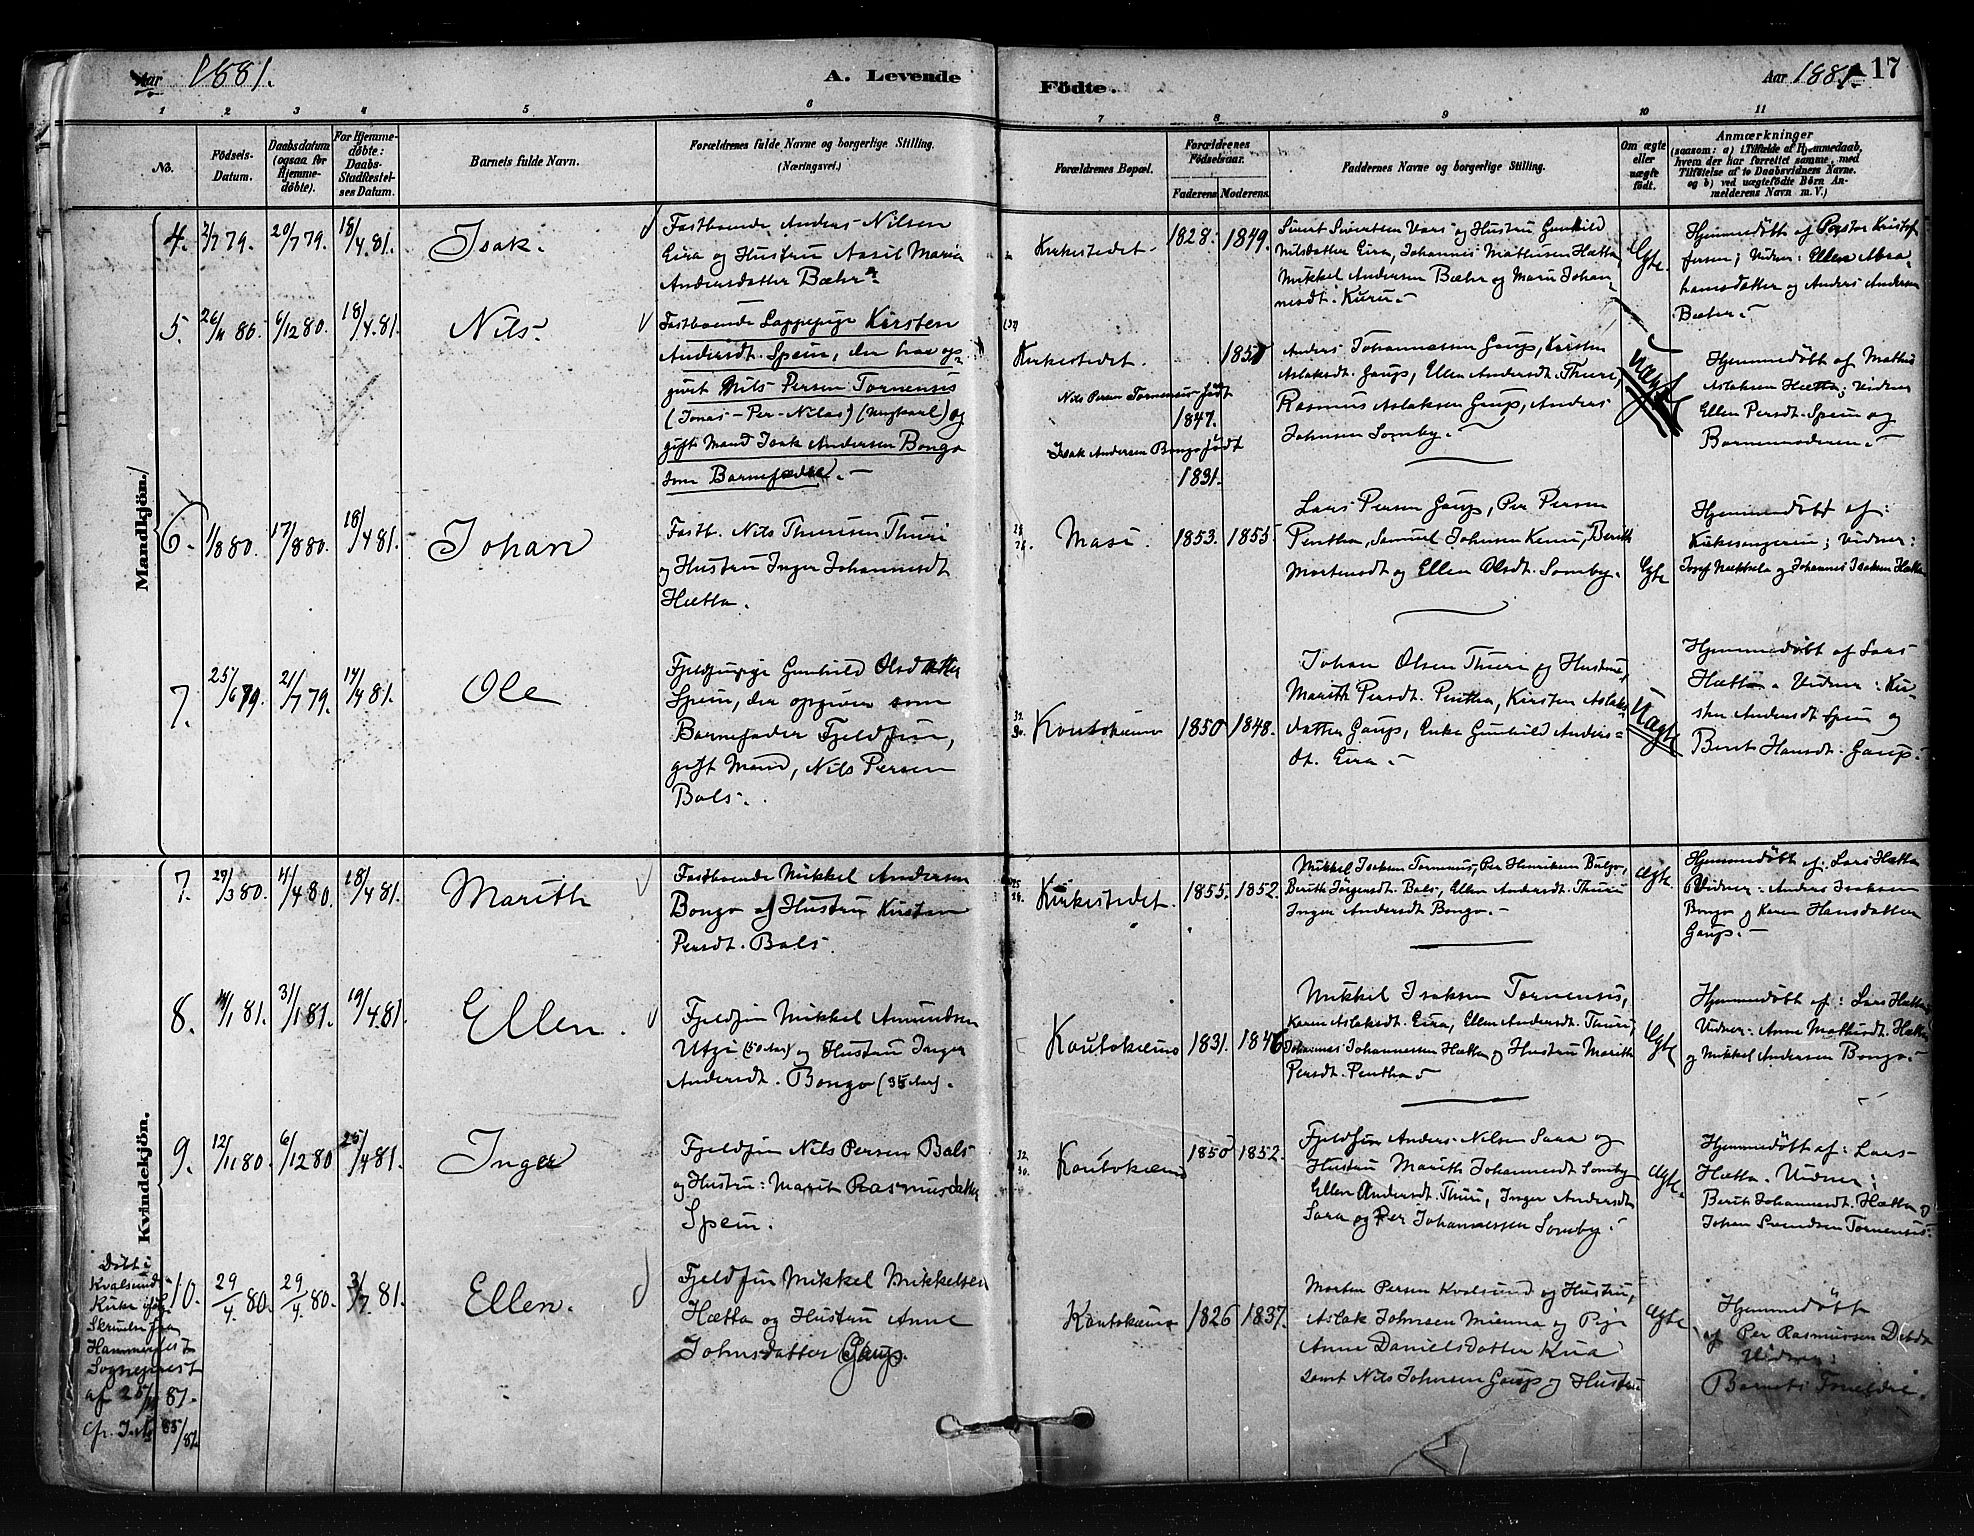 Aar 1881.
A. Levende
Födte.
Aar 1881. 17
1 2 3 4 5 6 7 8 9 10 11
No.
Födsels-
Datum.
Daabsdatum
(ogsaa for
Hjemme-
döbte).
For Hjemme-
döbte:
Daabs-
Stadfæstel-
ses Datum.
Barnets fulde Navn.
Forældrenes fulde Navne og borgerlige Stilling.
(Næringsvei.)
Forældrenes Bopæl.
Forældrenes
Födselsaar.
Faderens. Moderens.
Faddernes Navne og borgerlige Stilling.
Om ægte
eller
uægte
født.
Anmærkninger
(saasom: a) i Tilfælde af Hjemmedaab,
hvem der har forrettet samme, med
Tilføielse af to Daabsvidners Navne.
og b) ved uægtefödte Börn An-
melderens Navn m. V.)
Mandkjön.
4. 2/7 79. 20/7 79. 18/4 81. Isak.
Fastboende Anders Nilsen
Eira og Hustru Aasil Maria
Andersdatter Bæhr.
Kirkestedet. 1828. 1849.
Sivert Sivertsen Vars og Hustru Gunhild
Nilsdatter Eira, Johannes Mathisen Hætta,
Mikkel Andersen Bæhr og Marii Johan-
nesdt. Kuru.
Ægte.
Hjemmedöbt af Pastor Kristof
fersen; Vidner: Ellen Abra-
hamsdatter og Anders Andersen
Bæhr.
5. 26/11 80. 6/12 80. 18/4 81. Nils.
Fastboende Lappepige Kirsten
Andersdt. Spein, der har op-
givet Nils Persen Tornensis
(Jonas-Per-Nilas) (Ungkarl) og
gifte Mand Isak Andersen Bongo
som Barnefædre.
Kirkestedet. 1851
Nils Persen Tornensis født
1847.
Isak Andersen Bongo født
1831.
Anders Johannessen Gaup, Kirsten
Aslaksdt. Gaup, Ellen Andersdt. Thuri,
Rasmus Aslaksen Gaup, Anders
Johnsen Somby.
Uægte
Hjemmedöbt af Mathis
Aslaksen Hætta; Vidner
Ellen Persdt. Spein og
Barnemoderen.
6. 1/8 80. 17/8 80. 18/4 81. Johan
Fastb. Nils Thuresen Thuri
og Hustru Inger Johannesdt
Hætta.
Masi. 1853. 1855
Lars Persen Gaup, Per Persen
Pentha, Samuel Johnsen Kemi, Berith
Mortensdt og Ellen Olsdt. Somby.
Ægte
Hjemmedöbt af:
Kirkesangeren; Vidner:
Josef Nækkela og Johannes Isaksen Hætta
7. 25/6 79. 21/7 79. 17/4 81. Ole
Fjeldfinpige Gunhild Olsdatter
Spein, der opgiver som
Barnefader Fjeldfin,
gift Mand, Nils Persen
Bals.
Koutokeino 1850 1848.
Johan Olsen Thuri og Hustru,
Marith Persdt. Pentha, Kirsten Aslaks-
datter Gaup, Enke Gunhild Anders-
dt. Eira.
Uægte
Hjemmedöbt af Lars
Hætta. Vidner: Kir-
sten Andersdt Spein og
Berit Hansdt. Gaup.
Kvindekjön.
7. 29/3 80. 4/4 80. 18/4 81. Marith
Fastboende Mikkel Andersen
Bongo og Hustru Kirsten
Persdt. Bals.
Kirkestedet. 1855. 1852.
Mikkel Isaksen Tornensis, Per Henriksen Bulgo,
Berith Jörgensdt. Bals, Ellen Andersdt. Thuri
Inger Andersdt Bongo.
Ægte
Hjemmedöbt af: Lars Hætta
Vidner: Anders Isaksen
Bongo og Karen Hansdatter
Gaup.
8. 14/1 81. 31/1 81. 19/4 81. Ellen.
Fjeldfin Mikkel Amundsen
Utzi (50 Aar) og Hustru Inger
Andersdt. Bongo (35 Aar).
Koutokeino 1831. 1846
Mikkel Isaksen Tornensis,
Karen Aslaksdt. Eira, Ellen Andersdt. Thuri,
Johannes Johannessen Hætta og Hustru Marith
Persdt. Pentha.
Ægte
Hjemmedöbt af: Lars Hætta
Vidner: Anne Mathisdt. Hætta
og Mikkel Andersen Bongo.
9. 12/11 80. 6/12 80 25/4 81. Inger
Fjeldfin Nils Persen Bals
og Hustru: Marit Rasmusdatter
Spein.
Koutokeino 1850 1852.
Fjeldfin Anders Nilsen Sara og
Hustru Marith Johannesdt Somby
Ellen Andersdt. Thuri, Inger Andersdt
Sara og Per Johannessen Somby.
Ægte.
Hjemmedöbt af: Lars
Hætta. Vidner:
Berit Johannesdt. Hætta og
Johan Svendsen Tornensis.
Döbt i
Kvalsund
Kirke ifölge
Skrivelse fra
Hammerfest
Sogneprest
af 25/ 87.
cfr. 85/87
10. 29/4 80. 29/4 80. 3/7 81. Ellen.
Fjeldfin Mikkel Mikkelsen
Hætta og Hustru Anne
Johnsdatter Gaup.
Koutokeino 1826 1837.
Morten Persen Kvalsund og Hustru,
Aslak Johnsen Mienna og Pige
Anne Danielsdatter Kua
samt Nils Johnsen Gaup og Hustru
Ægte
Hjemmedöbt
af Per Rasmussen
Vidner:
Barnets Forældre.